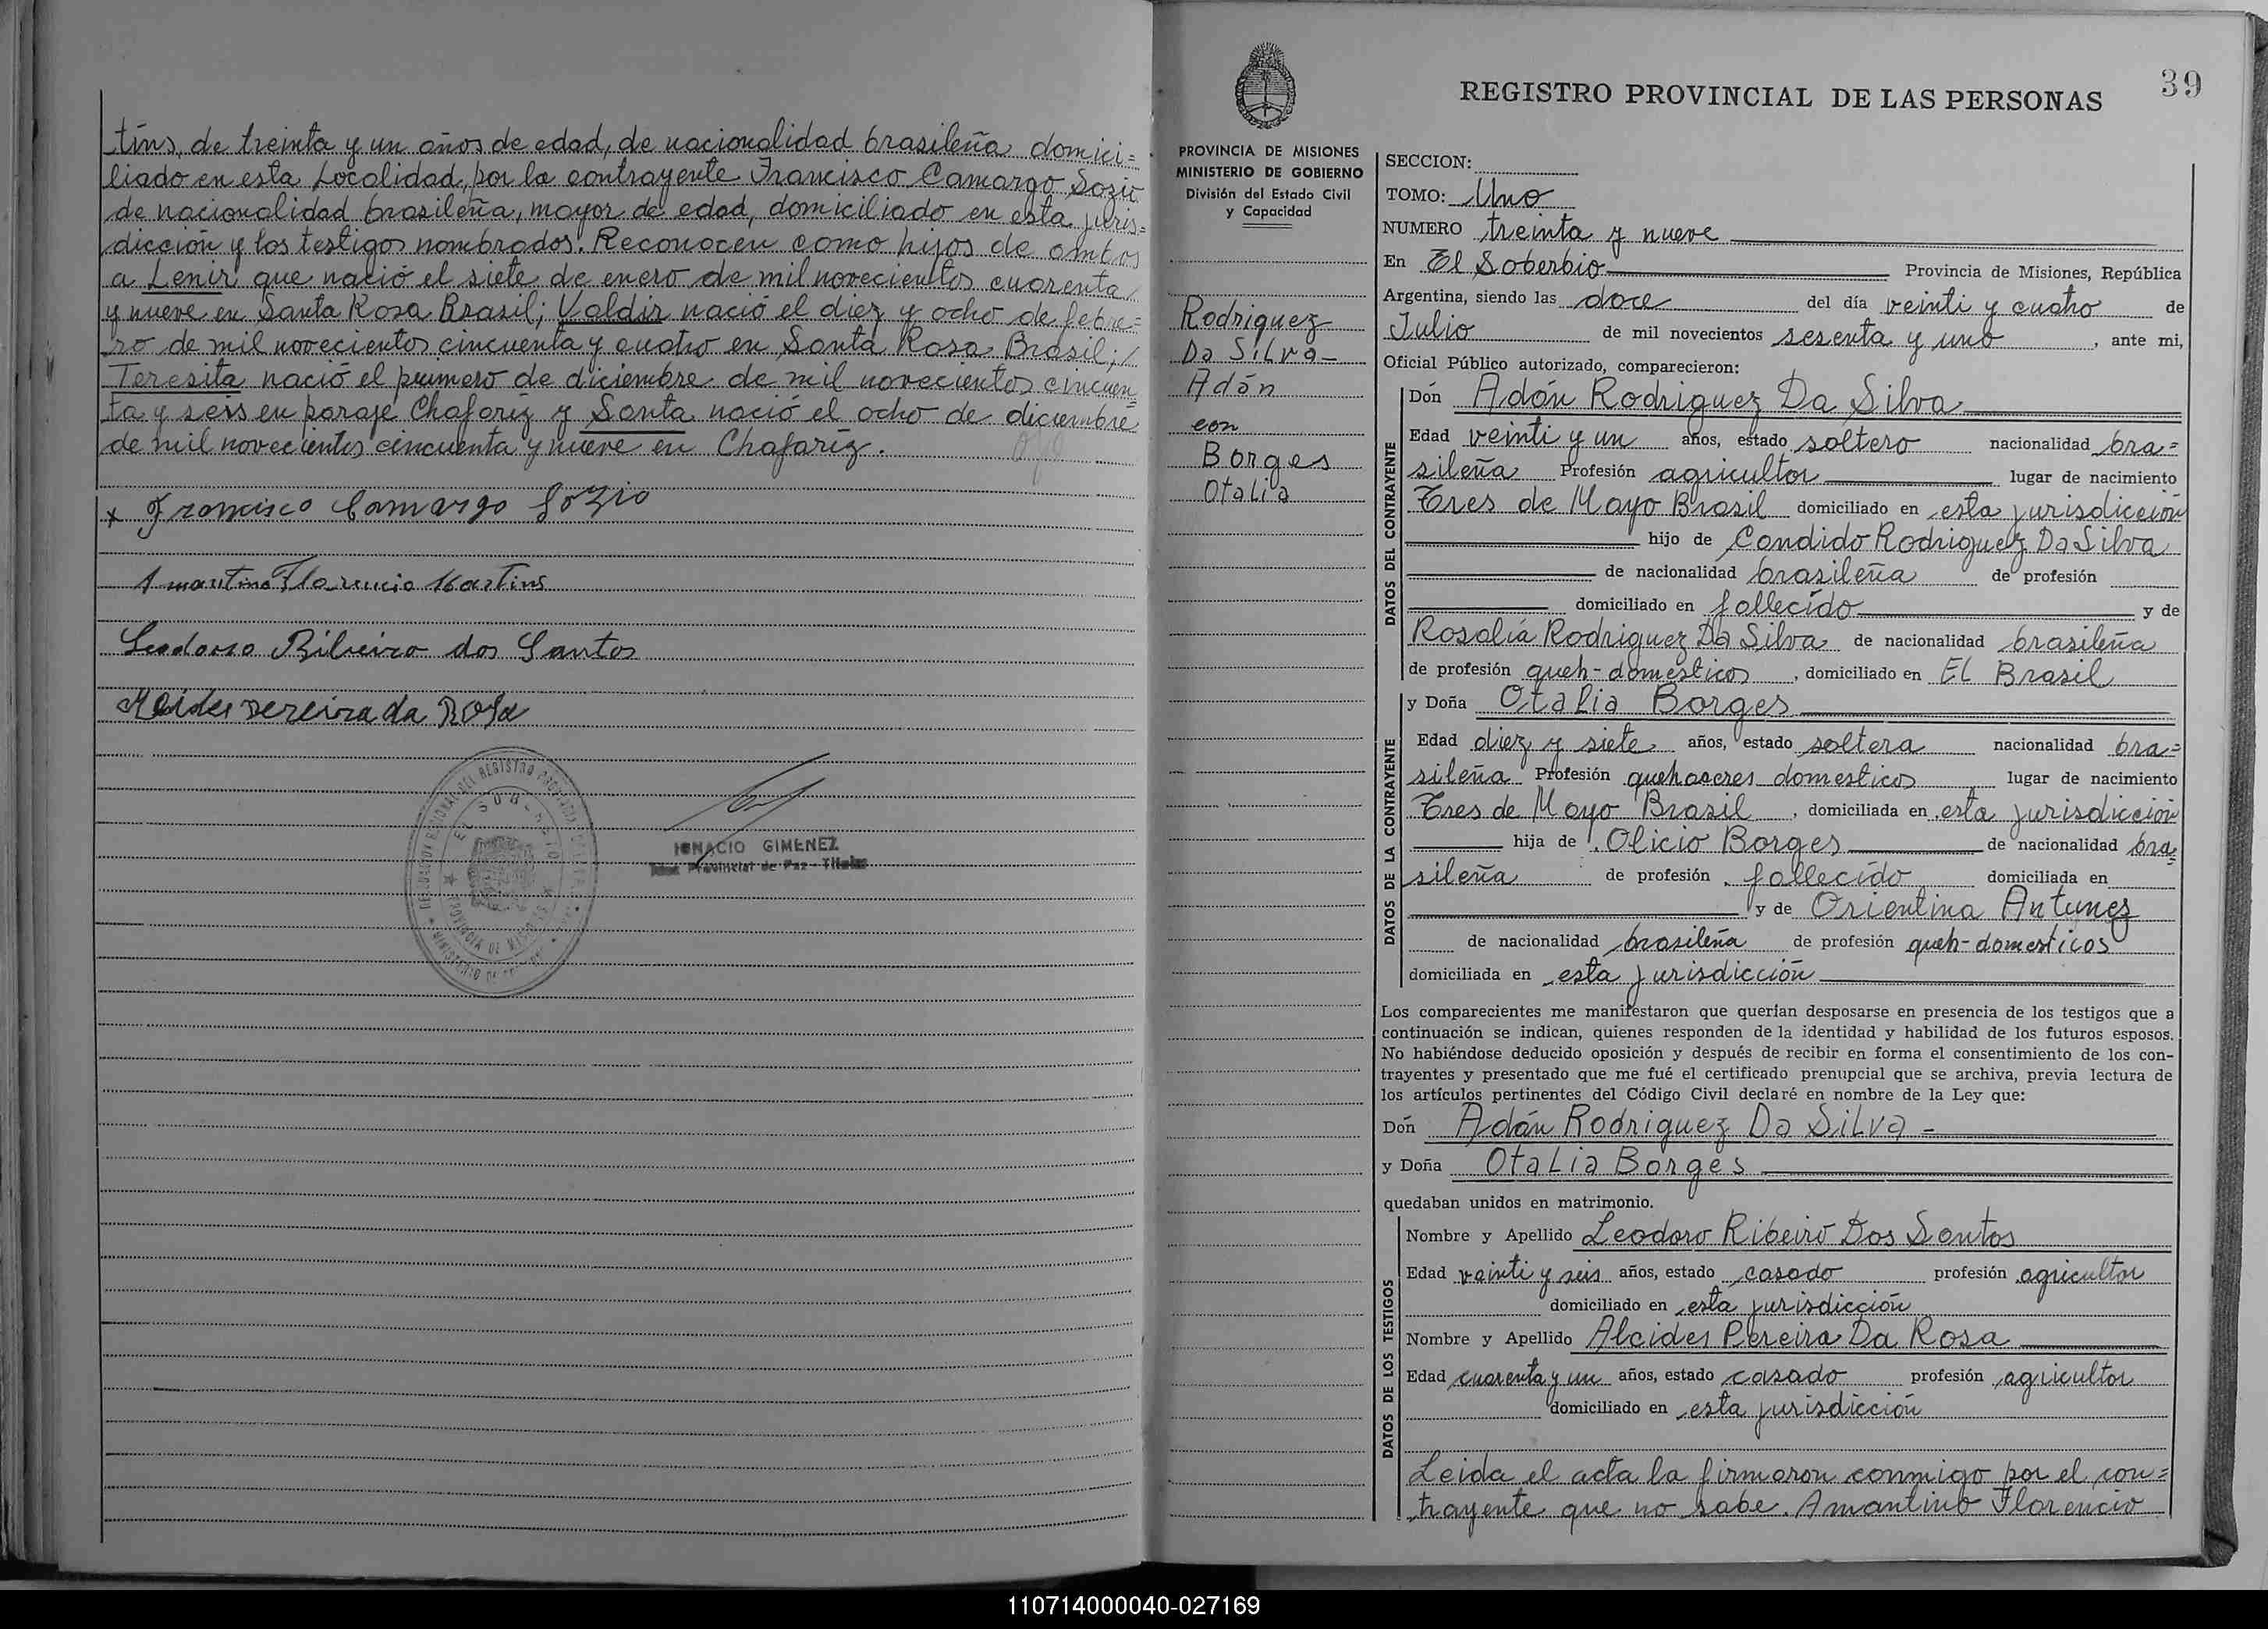 tins, de treinta y un años de edad, de nacionalidad brasileña domici=
liado en esta Localidad, por la contrayente Francisco Camargo Sozio
de nacionalidad brasileña, mayor de edad, domiciliado en esta juris=
dicción y los testigos nombrados. Reconocen como hijos de ambos
a Lenir que nació el siete de enero de mil novecientos cuarenta
y nueve en Santa Rosa Brasil; Valdir nació el diez y ocho de febre=
ro de mil novecientos cincuenta y cuatro en Santa Rosa Brasil;
Teresita nació el primero de diciembre de mil novecientos cincuen
ta y seis en paraje Chafariz y Santa nació el ocho de diciembre
de mil novecientos cincuenta y nueve en Chafariz.
x Francisco Camargo Sozio
Amantino Florencio Martins
Leodoro Ribeiro dos Santos
Alcides Pereira da Rosa
IGNACIO GIMENEZ
Juez Provincial de Paz - Titular
39
REGISTRO PROVINCIAL DE LAS PERSONAS
PROVINCIA DE MISIONES
MINISTERIO DE GOBIERNO
División del Estado Civil
y Capacidad
Rodriguez
Da Silva-
Adán
con
Borges
Otalia
SECCION:
TOMO: Uno
NUMERO treinta y nueve
En El Soberbio Provincia de Misiones, República
Argentina, siendo las doce del día veinti y cuatro de
Julio de mil novecientos sesenta y uno, ante mi,
Oficial Público autorizado, comparecieron:
DATOS DEL CONTRAYENTE
Dón Adán Rodriguez Da Silva
Edad veinti y un años, estado soltero nacionalidad bra=
sileña Profesión agricultor lugar de nacimiento
Tres de Mayo Brasil domiciliado en esta jurisdicción
hijo de Candido Rodriguez Da Silva
de nacionalidad brasileña de profesión
domiciliado en fallecido y de
Rosalía Rodriguez Da Silva de nacionalidad brasileña
de profesión queh-domesticos, domiciliado en El Brasil
DATOS DE LA CONTRAYENTE
y Doña Otalia Borges
Edad diez y siete años, estado soltera nacionalidad bra=
sileña Profesión quehaceres domesticos lugar de nacimiento
Tres de Mayo Brasil, domiciliada en esta jurisdicción
hija de Olicio Borges de nacionalidad bra=
sileña de profesión fallecido domiciliada en
y de Orientina Antunez
de nacionalidad brasileña de profesión queh-domesticos
domiciliada en esta jurisdicción
Los comparecientes me manifestaron que querían desposarse en presencia de los testigos que a
continuación se indican, quienes responden de la identidad y habilidad de los futuros esposos.
No habiéndose deducido oposición y después de recibir en forma el consentimiento de los con-
trayentes y presentado que me fué el certificado prenupcial que se archiva, previa lectura de
los artículos pertinentes del Código Civil declaré en nombre de la Ley que:
Dón Adán Rodriguez Da Silva -
y Doña Otalia Borges
quedaban unidos en matrimonio.
DATOS DE LOS TESTIGOS
Nombre y Apellido Leodoro Ribeiro Dos Santos
Edad veinti y seis años, estado casado profesión agricultor
domiciliado en esta jurisdicción
Nombre y Apellido Alcides Pereira Da Rosa
Edad cuarenta y un años, estado casado profesión agricultor
domiciliado en esta jurisdicción
Leida el acta la firmaron conmigo por el con=
trayente que no sabe. Amantino Florencio
110714000040-027169